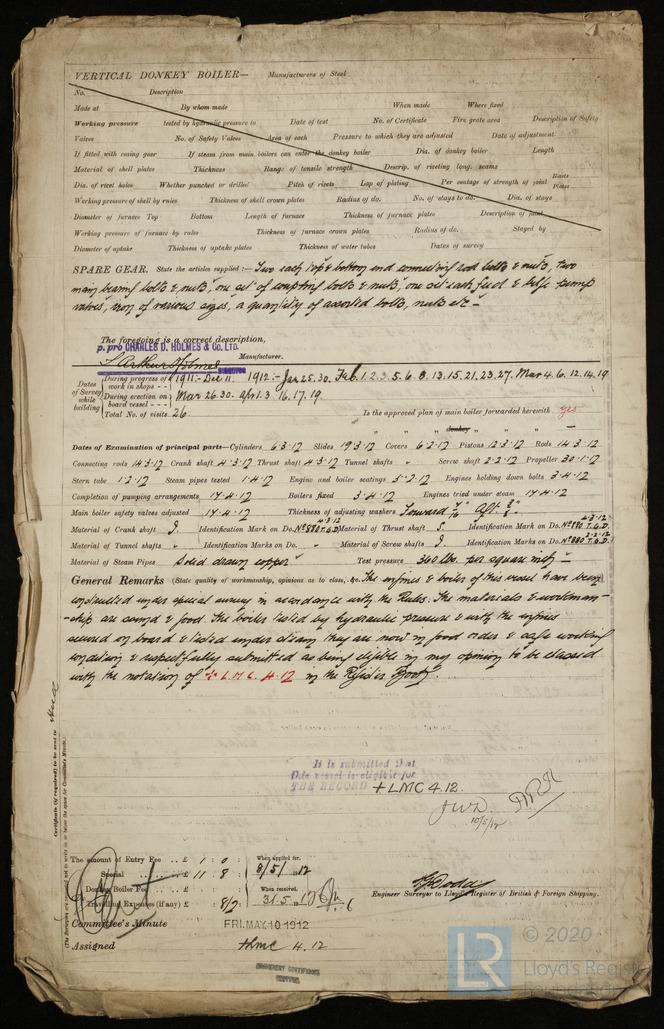 VERTICAL DONKEY BOILER— Manufacturers of Steel
No. Description
Made at By whom made When made Where fixed
Working pressure tested by hydraulic pressure to Date of test No. of Certificate Fire grate area Description of Safety
Valves No. of Safety Valves Area of each Pressure to which they are adjusted Date of adjustment
If fitted with casing gear If steam from main boilers can enter the donkey boiler Dia. of donkey boiler Length
Material of shell plates Thickness Range of tensile strength Descrip. of riveting long. seams
Dia. of rivet holes Whether punched or drilled Pitch of rivets Lap of plating Per centage of strength of joint Rivets Plates
Working pressure of shell by rules Thickness of shell crown plates Radius of do. No. of stays to do. Dia. of stays
Diameter of furnace Top Bottom Length of furnace Thickness of furnace plates Description of joint
Working pressure of furnace by rules Thickness of furnace crown plates Radius of do. Stayed by
Diameter of uptake Thickness of uptake plates Thickness of water tubes Dates of survey
SPARE GEAR. State the articles supplied:— Two each top & bottom end connecting rod bolts & nuts, two
main bearing bolts & nuts, one set of coupling bolts & nuts, one set each feed & bilge pump
valves, iron of various sizes, a quantity of assorted bolts, nuts etc —
The foregoing is a correct description,
p. pro CHARLES D. HOLMES & Co. LTD.
Arthur Holmes Manufacturer.
Dates of Survey while building
During progress of work in shops - - 1911:- Dec 11. 1912:- Jan 25. 30. Feb. 1. 2. 3. 5. 6. 8. 13. 15. 21. 23. 27. Mar 4. 6. 12. 14. 19
During erection on board vessel - - - Mar 26. 30. Apl 1. 3. 16. 17. 19.
Total No. of visits 26. Is the approved plan of main boiler forwarded herewith yes
" " " donkey " " "
Dates of Examination of principal parts—Cylinders 6·3·12 Slides 19·3·12 Covers 6·2·12 Pistons 12·3·12 Rods 14·3·12
Connecting rods 14·3·12 Crank shaft 4·3·12 Thrust shaft 4·3·12 Tunnel shafts " Screw shaft 2·2·12 Propeller 30·1·12
Stern tube 1·2·12 Steam pipes tested 1·4·12 Engine and boiler seatings 5·2·12 Engines holding down bolts 3·4·12
Completion of pumping arrangements 17·4·12 Boilers fixed 3·4·12 Engines tried under steam 17·4·12
Main boiler safety valves adjusted 17·4·12 Thickness of adjusting washers Forward Aft
Material of Crank shaft S. Identification Mark on Do. No 880 T.G.D. 4·3·12 Material of Thrust shaft S. Identification Mark on Do. No 880 T.G.D. 4·3·12
Material of Tunnel shafts " Identification Marks on Do. " Material of Screw shafts S Identification Marks on Do. No 880 T.G.D. 2·2·12
Material of Steam Pipes Solid drawn copper Test pressure 360 lbs. per square inch —
General Remarks (State quality of workmanship, opinions as to class, &c. The engines & boiler of this vessel have been
constructed under special survey in accordance with the Rules. The materials & workman-
-ship are sound & good. The boiler tested by hydraulic pressure & with the engines
secured on board & tested under steam they are now in good order & safe working
condition & respectfully submitted as being eligible in my opinion to be classed
with the notation of + L.M.C. 4·12 in the Register Book.
Certificate (if required) to be sent to Hull
(The Surveyors are requested not to write on or below the space for Committee's Minute.)
It is submitted that
this vessel is eligible for
THE RECORD + LMC 4.12.
J.W.D.
10/5/12
The amount of Entry Fee .. £ 1 : 0 : When applied for,
Special .. £ 11 : 8 : 8/5/1912
Donkey Boiler Fee .. £ : : When received,
Travelling Expenses (if any) £ : 8/2 : 31.5.12
Engineer Surveyor to Lloyd's Register of British & Foreign Shipping.
Committee's Minute FRI. MAY 10 1912
Assigned + LMC 4.12
MACHINERY CERTIFICATE
WRITTEN.
LR
© 2020
Lloyd's Register
Foundation